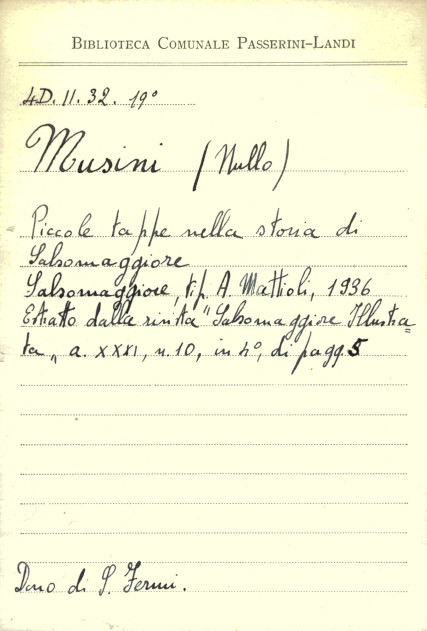 BIBLIOTECA COMUNALE PASSERINI-LANDI
4D. II. 32. 19°
Musini (Nullo)
Piccole tappe nella storia di
Salsomaggiore
Salsomaggiore, tip. A. Mattioli, 1936
Estratto dalla rivista "Salsomaggiore Illustra=
ta", a. XXXI, n. 10, in 4°, di pagg. 5
Dono di S. Fermi.